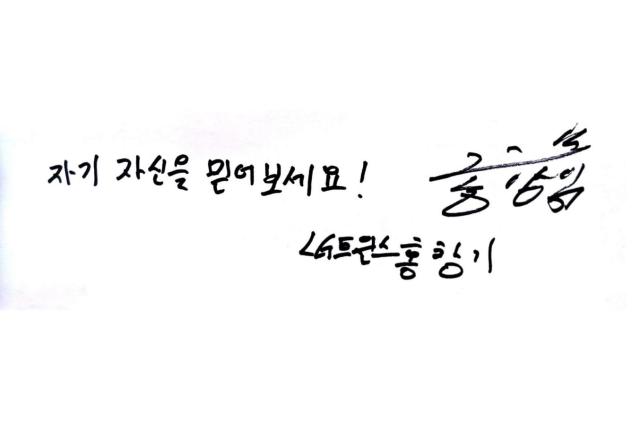 자기 자신을 믿어보세요!
LG트윈스 홍창기